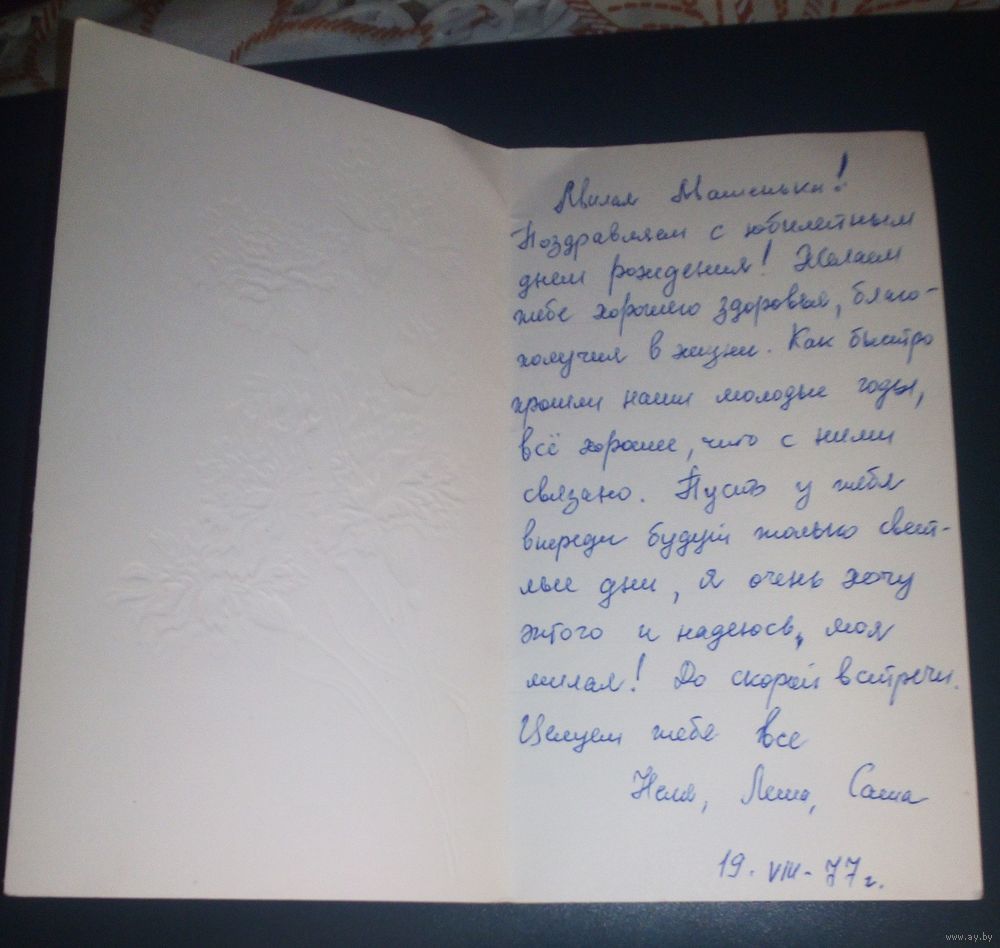 Милая Машенька!
Поздравляем с юбилейным
днем рождения! Желаем
тебе хорошего здоровья, благо-
получия в жизни. Как быстро
прошли наши молодые годы,
всё хорошее, что с ними
связано. Пусть у тебя
впереди будут только свет-
лые дни, я очень хочу
этого и надеюсь, моя
милая! До скорой встречи.
Целуем тебя все
Неля, Леша, Саша
19. VIII - 77 г.
www.ay.by